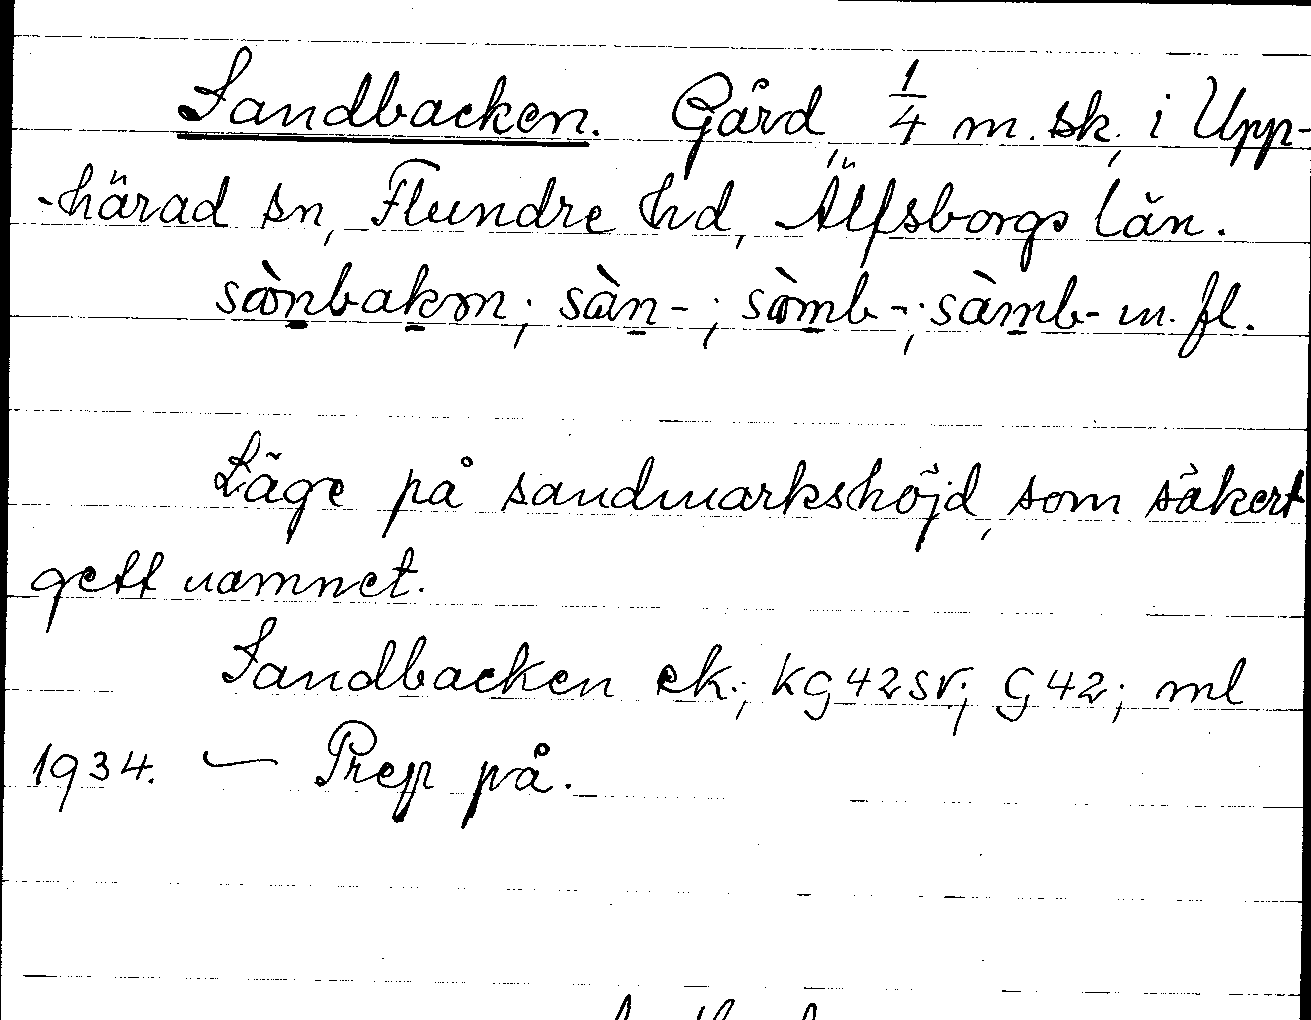 Sandbacken. Gård, 1/4 m. sk, i Upp-
-härad sn, Flundre hd, Älfsborgs län.
sànbakɷn; sàn-; sàmb-; sàmb- m. fl.
Läge på sandmarkshöjd, som säkert
gett namnet.
Sandbacken ek.; KG42SV; G42; ml
1934. — Prep på.